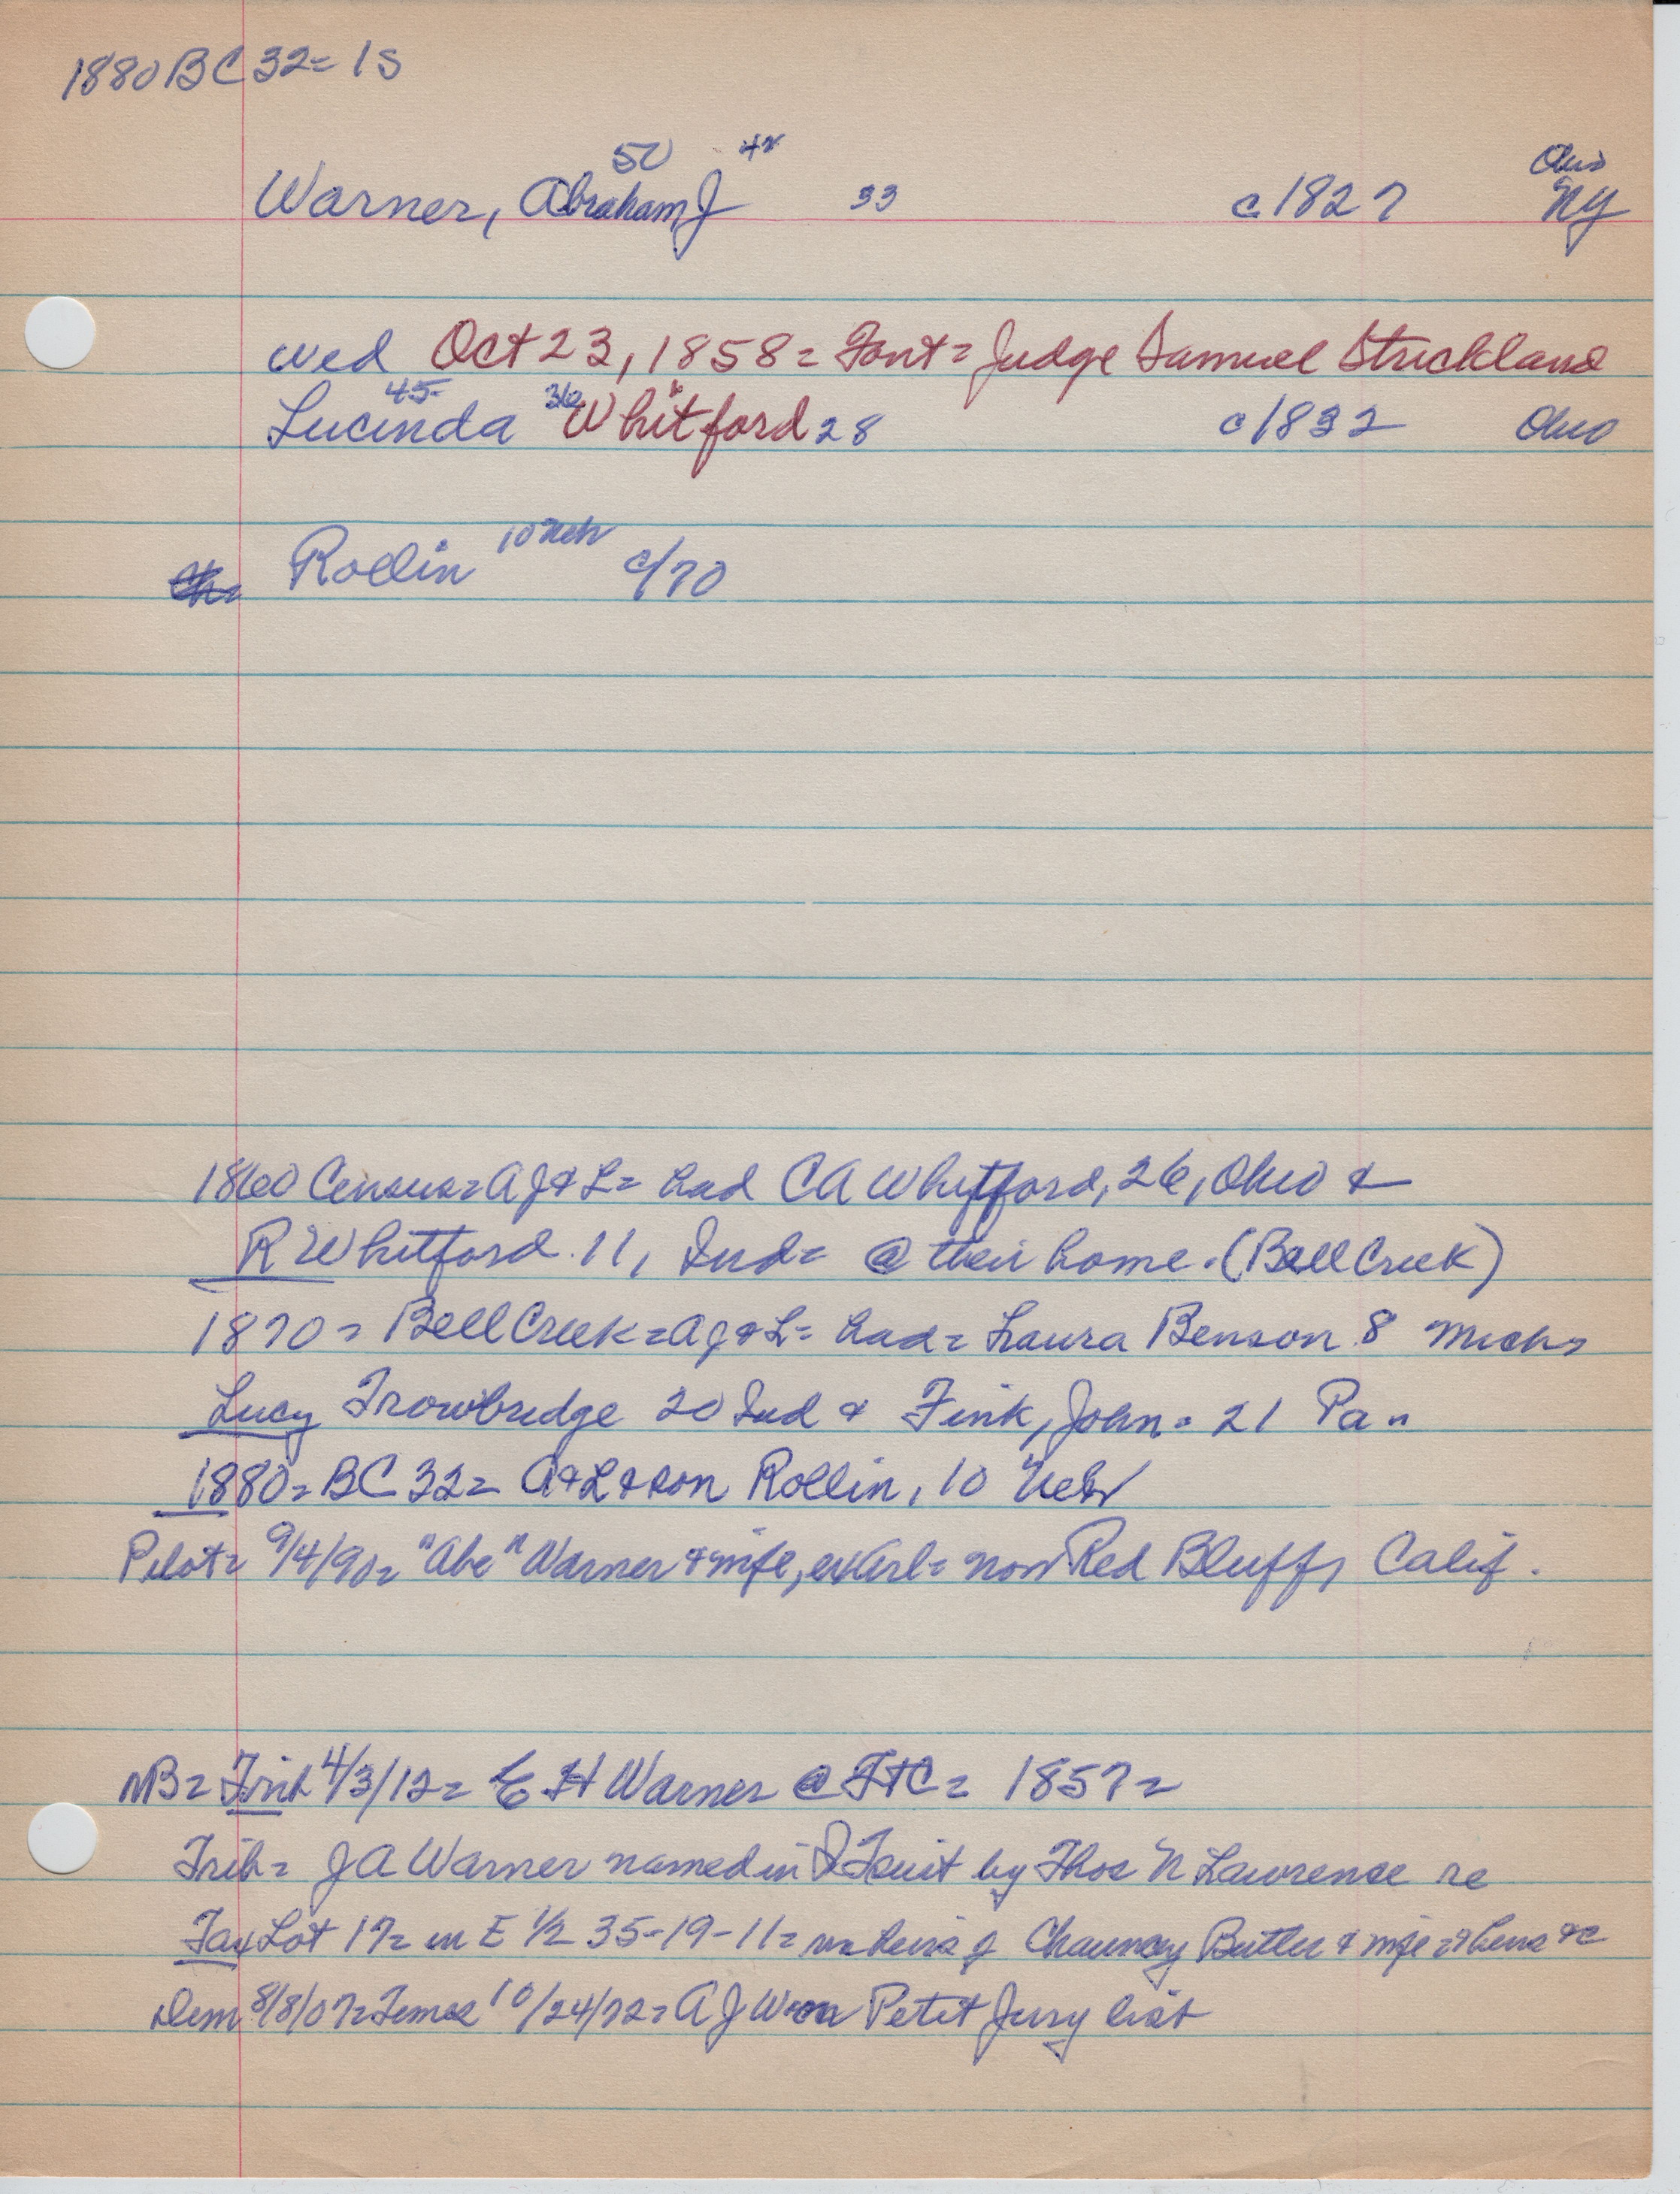 1880 BC 32= 1S
50 42 Ohio
Warner, Abraham J 33 c 1827 NY
wed Oct 23, 1858= Font= Judge Samuel Strickland
45 36
Lucinda Whitford 28 c 1832 Ohio
Rollin 10 Neb c/70
1860 Census= AJ & L= had CA Whitford, 26, Ohio &
R Whitford 11, Ind= @ their home. (Bell Creek)
1870= Bell Creek= AJ & L= had= Laura Benson 8 Mich,
Lucy Trowbridge 20 Ind & Fink, John= 21 Pa=
1880= BC 32= A & L & son Rollin, 10 Nebr
Pilot= 9/4/90= "Abe" Warner & wife, = now Red Bluff, Calif.
NB= Trib 4/3/12= E H Warner @ FtC= 1857=
Trib= J A Warner named in suit by Thos N Lawrense re
Tax Lot 17= in E 1/2 35-19-11= heirs of Chauncey Butler & wife & heirs &c
Dem 8/8/07= Times 10/24/72= A J W on Petit Jury list